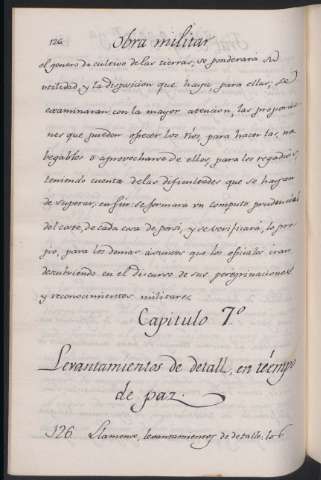 126 Obra militar
el genero de cultivo de las tierras, se ponderará su
utilidad, y la disposicion que haya para ellas, se
examinaran con la mayor atencion, las proporcio
nes que pueden ofrecer los rios, para hacerlas, na
begables o aprovecharse de ellos, para los regadios,
teniendo cuenta de las dificultades que se hayan
de superar, en fin se formara un computo prudencial
del coste, de cada cosa de porsi, y se verificará, lo pro
pio, para los demas asuntos que los oficiales iran
descubriendo en el discurso de sus peregrinaciones
y reconocimientos militares.
Capitulo 7.o
Levantamientos de detall, en tiempo
de paz.
126. Llamense, levantamientos de detalle, los